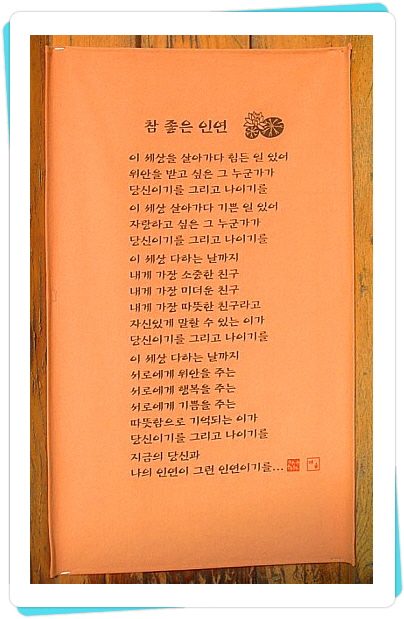 참 좋은 인연
이 세상을 살아가다 힘든 일 있어
위안을 받고 싶은 그 누군가가
당신이기를 그리고 나이기를
이 세상 살아가다 기쁜 일 있어
자랑하고 싶은 그 누군가가
당신이기를 그리고 나이기를
이 세상 다하는 날까지
내게 가장 소중한 친구
내게 가장 미더운 친구
내게 가장 따뜻한 친구라고
자신있게 말할 수 있는 이가
당신이기를 그리고 나이기를
이 세상 다하는 날까지
서로에게 위안을 주는
서로에게 행복을 주는
서로에게 기쁨을 주는
따뜻함으로 기억되는 이가
당신이기를 그리고 나이기를
지금의 당신과
나의 인연이 그런 인연이기를...